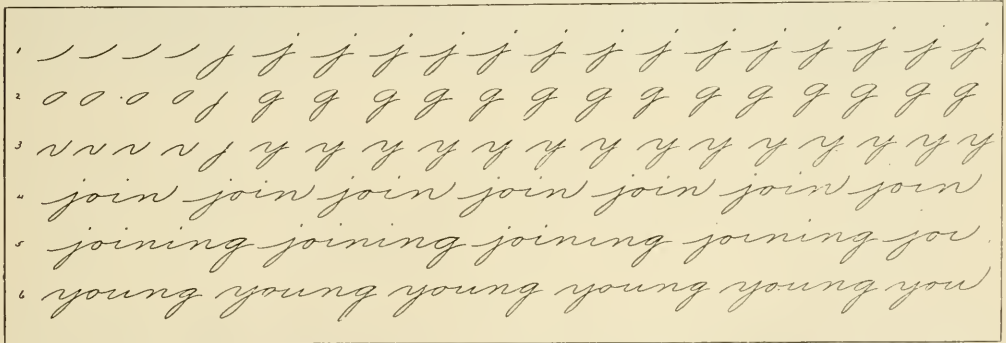 1 j j j j j j j j j j j j j j
2 g g g g g g g g g g g g g g
3 y y y y y y y y y y y y y y
4 join join join join join join join
5 joining joining joining joining joi
6 young young young young young you